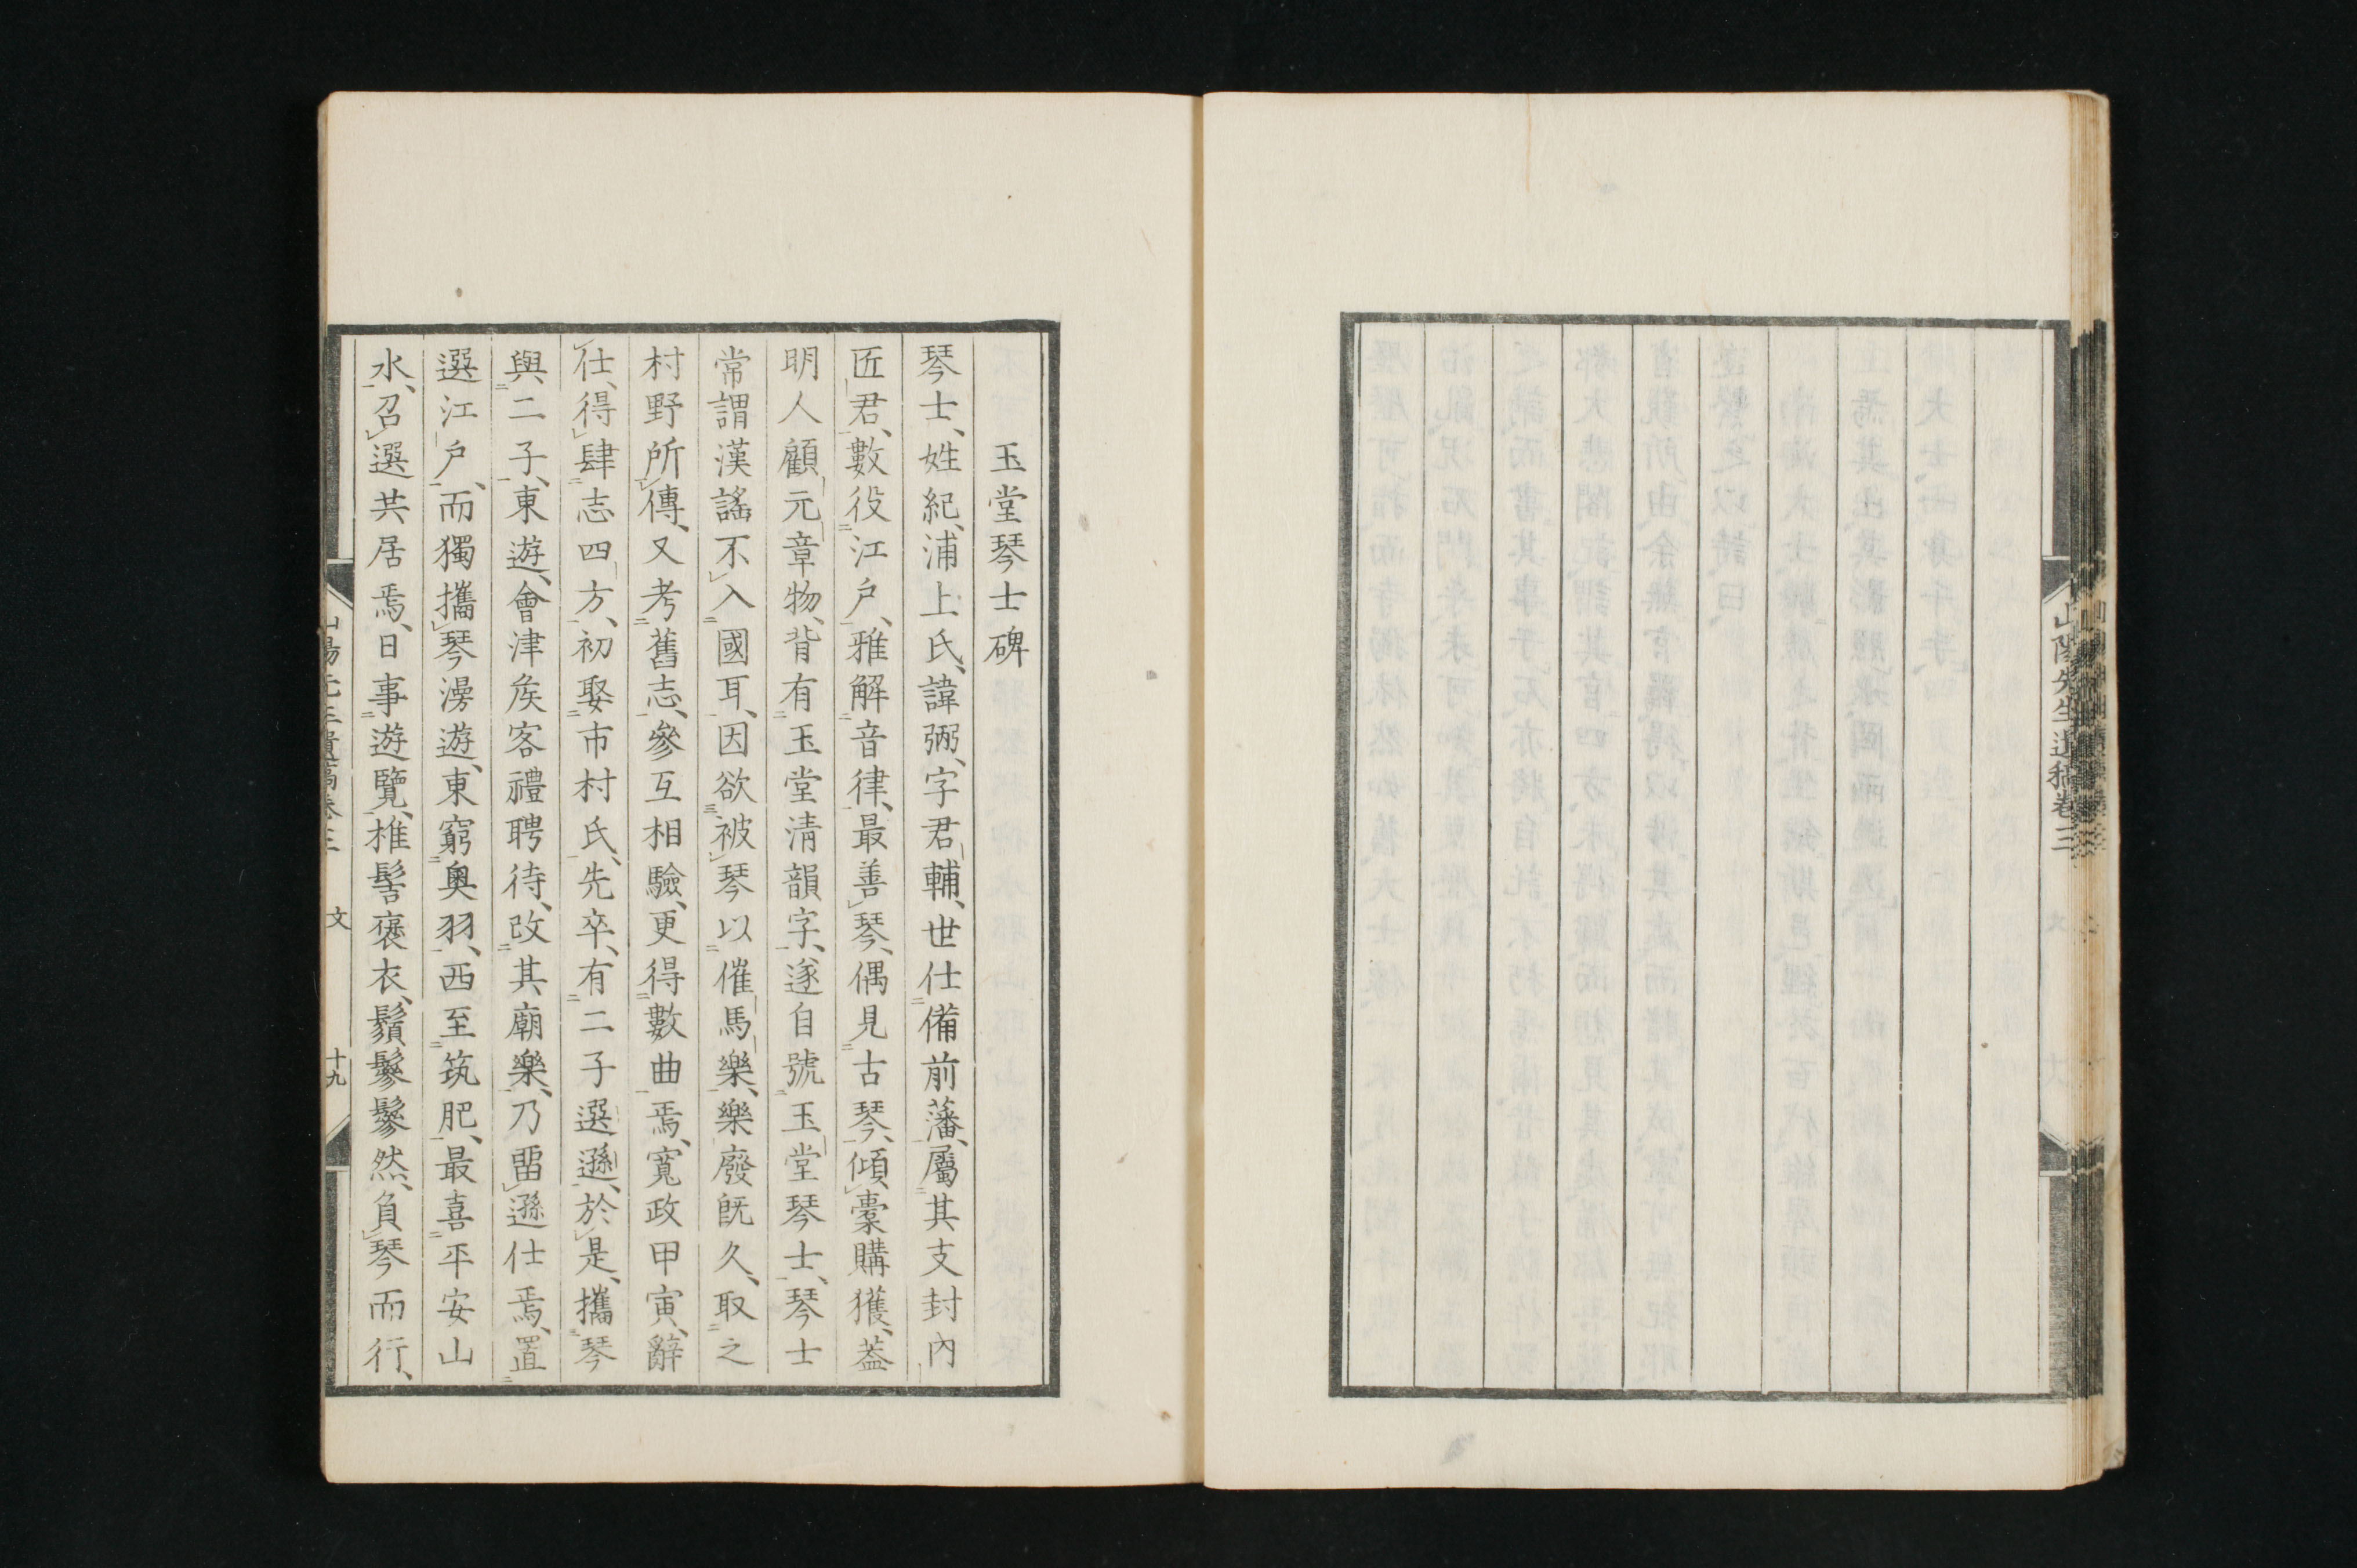 山陽先生遺稿卷三
玉堂琴士碑
琴士、姓紀、浦上氏、諱弼、字君輔、世仕備前藩、屬其支封內
匠君、數役江戶、雅解音律、最善琴、偶見古琴、傾橐購獲、蓋
明人顧元章物、背有玉堂淸韻字、遂自號玉堂琴士、琴士
常謂漢謠不入國耳、因欲被琴以催馬樂、樂廢旣久、取之
村野所傳、又考舊志、參互相驗、更得數曲焉、寬政甲寅、辭
仕、得肆志四方、初娶市村氏、先卒、有二子選遜、於是、攜琴
與二子、東遊、會津矦客禮聘待、改其廟樂、乃畱遜仕焉、置
選江戶、而獨攜琴漫遊、東窮奧羽、西至筑肥、最喜平安山
水、召選共居焉、日事遊覽、椎髻褒衣、鬚鬖鬖然、負琴而行、
山陽先生遺稿卷三 文 十九